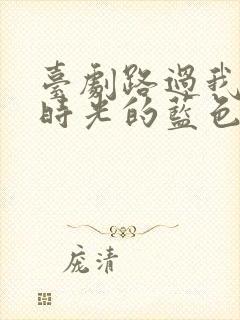 臺劇路過我
時光的藍色
庞清